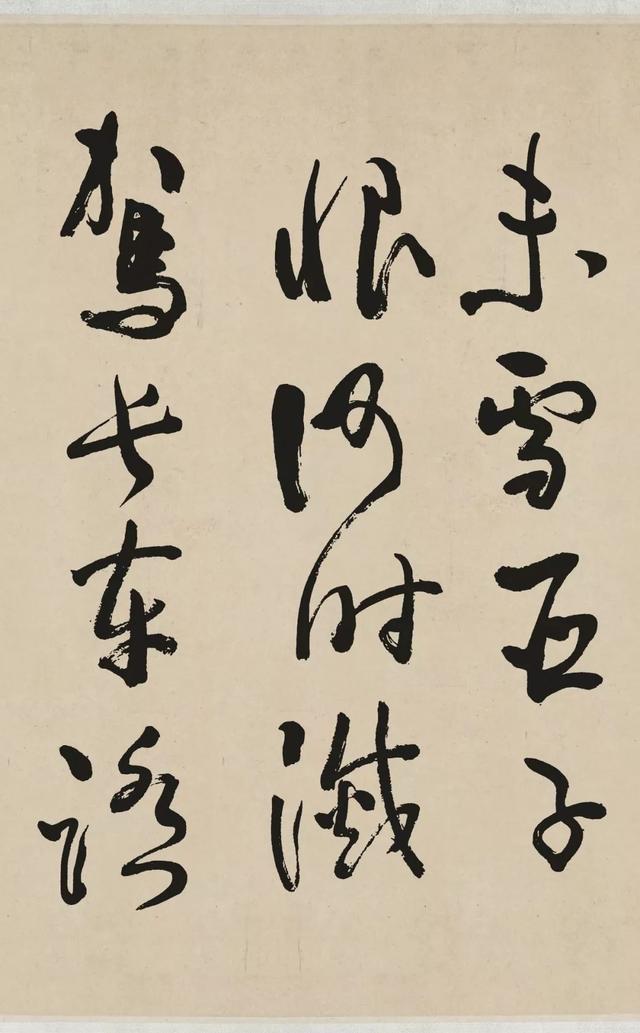 未雪臣子
恨何時滅
駕長車踏